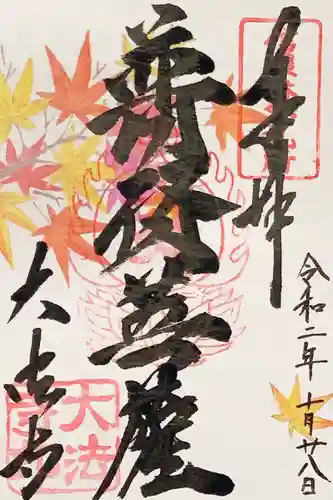 奉拝
普賢菩薩
大法寺
大法
令和二年 十月廿八日